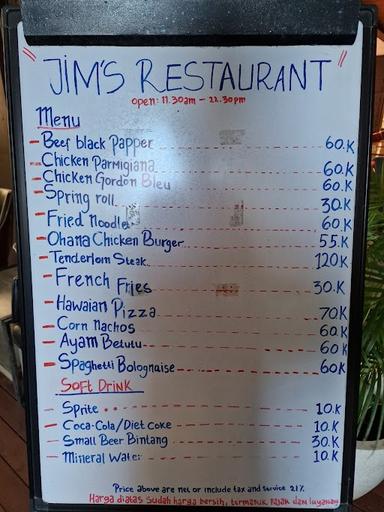 JIM'S RESTAURANT
open: 11.30am - 22.30pm
Menu
- Beef black Papper 60.K
- Chicken Parmigiana 60.K
- Chicken Gordon Bleu 60.K
- Spring roll 30.K
- Fried Noodle 60.K
- Ohana Chicken Burger 55.K
- Tenderloin Steak 120K
- French Fries 30.K
- Hawaian Pizza 70K
- Corn Nachos 60.K
- Ayam Betutu 60K
- Spaghetti Bolognaise 60K
SOFT DRINK
- Sprite 10.K
- Coca-Cola/Diet Coke 10.K
- Small Beer Bintang 30.K
- Mineral Water 10.K
Price above are net or include tax and service 21%
Harga diatas sudah harga bersih, termasuk pajak dan layanan